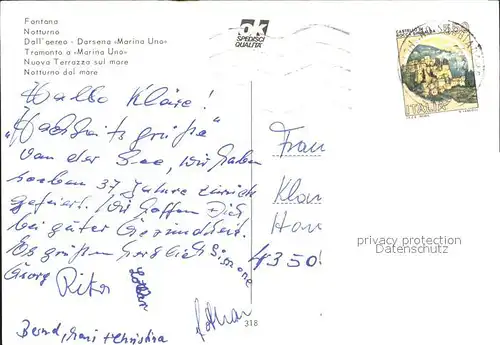 Fontana
Notturno
Dall'aereo - Darsena «Marina Uno»
Tramonto a «Marina Uno»
Nuova Terrazza sul mare
Notturno dal mare
ok
SPEDISCI
QUALITA'
ITALIA
Hallo Kläre!
"Hochzeitsgrüße"
von der See, wir haben
soeben 37 Jahre
gefeiert. Wir hoffen Dich
bei guter Gesundheit.
Es grüßen herzlich Simone
Georg Rita Lothar
Bernd, + Christina
Frau
4350
privacy protection
Datenschutz
318